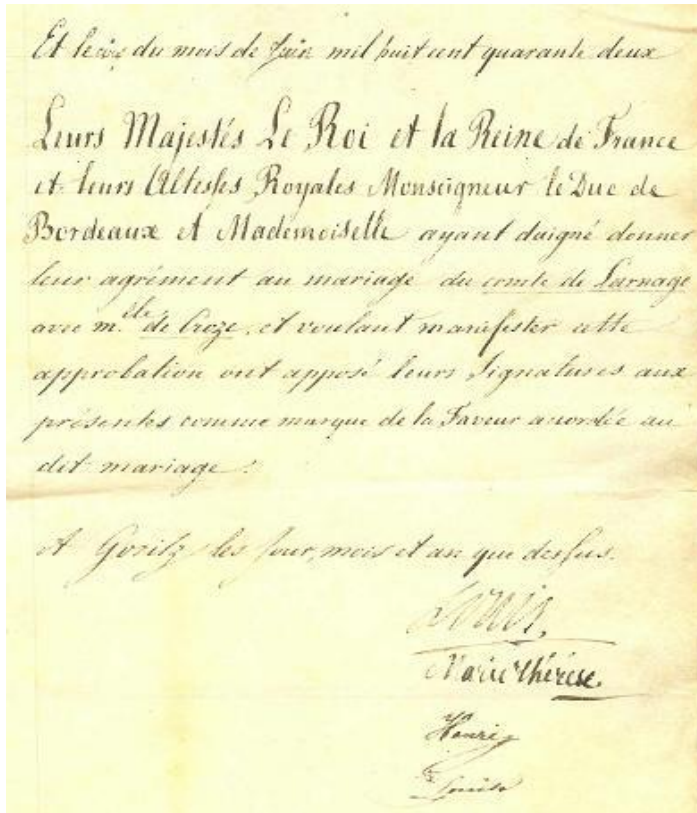 Et le du mois de Juin mil huit cent quarante deux
Leurs Majestés Le Roi et la Reine de France
et leurs Altesses Royales Monseigneur le Duc de
Bordeaux et Mademoiselle ayant daigné donner
leur agrément au mariage du comte de Larnage
avec m.lle de Croze, et voulant manifester cette
approbation ont apposé leurs signatures aux
présentes comme marque de la Faveur accordée au
dit mariage.
A Goritz les jour, mois et an que dessus.
Louis.
Marie Thérèse.
Henri
Louise